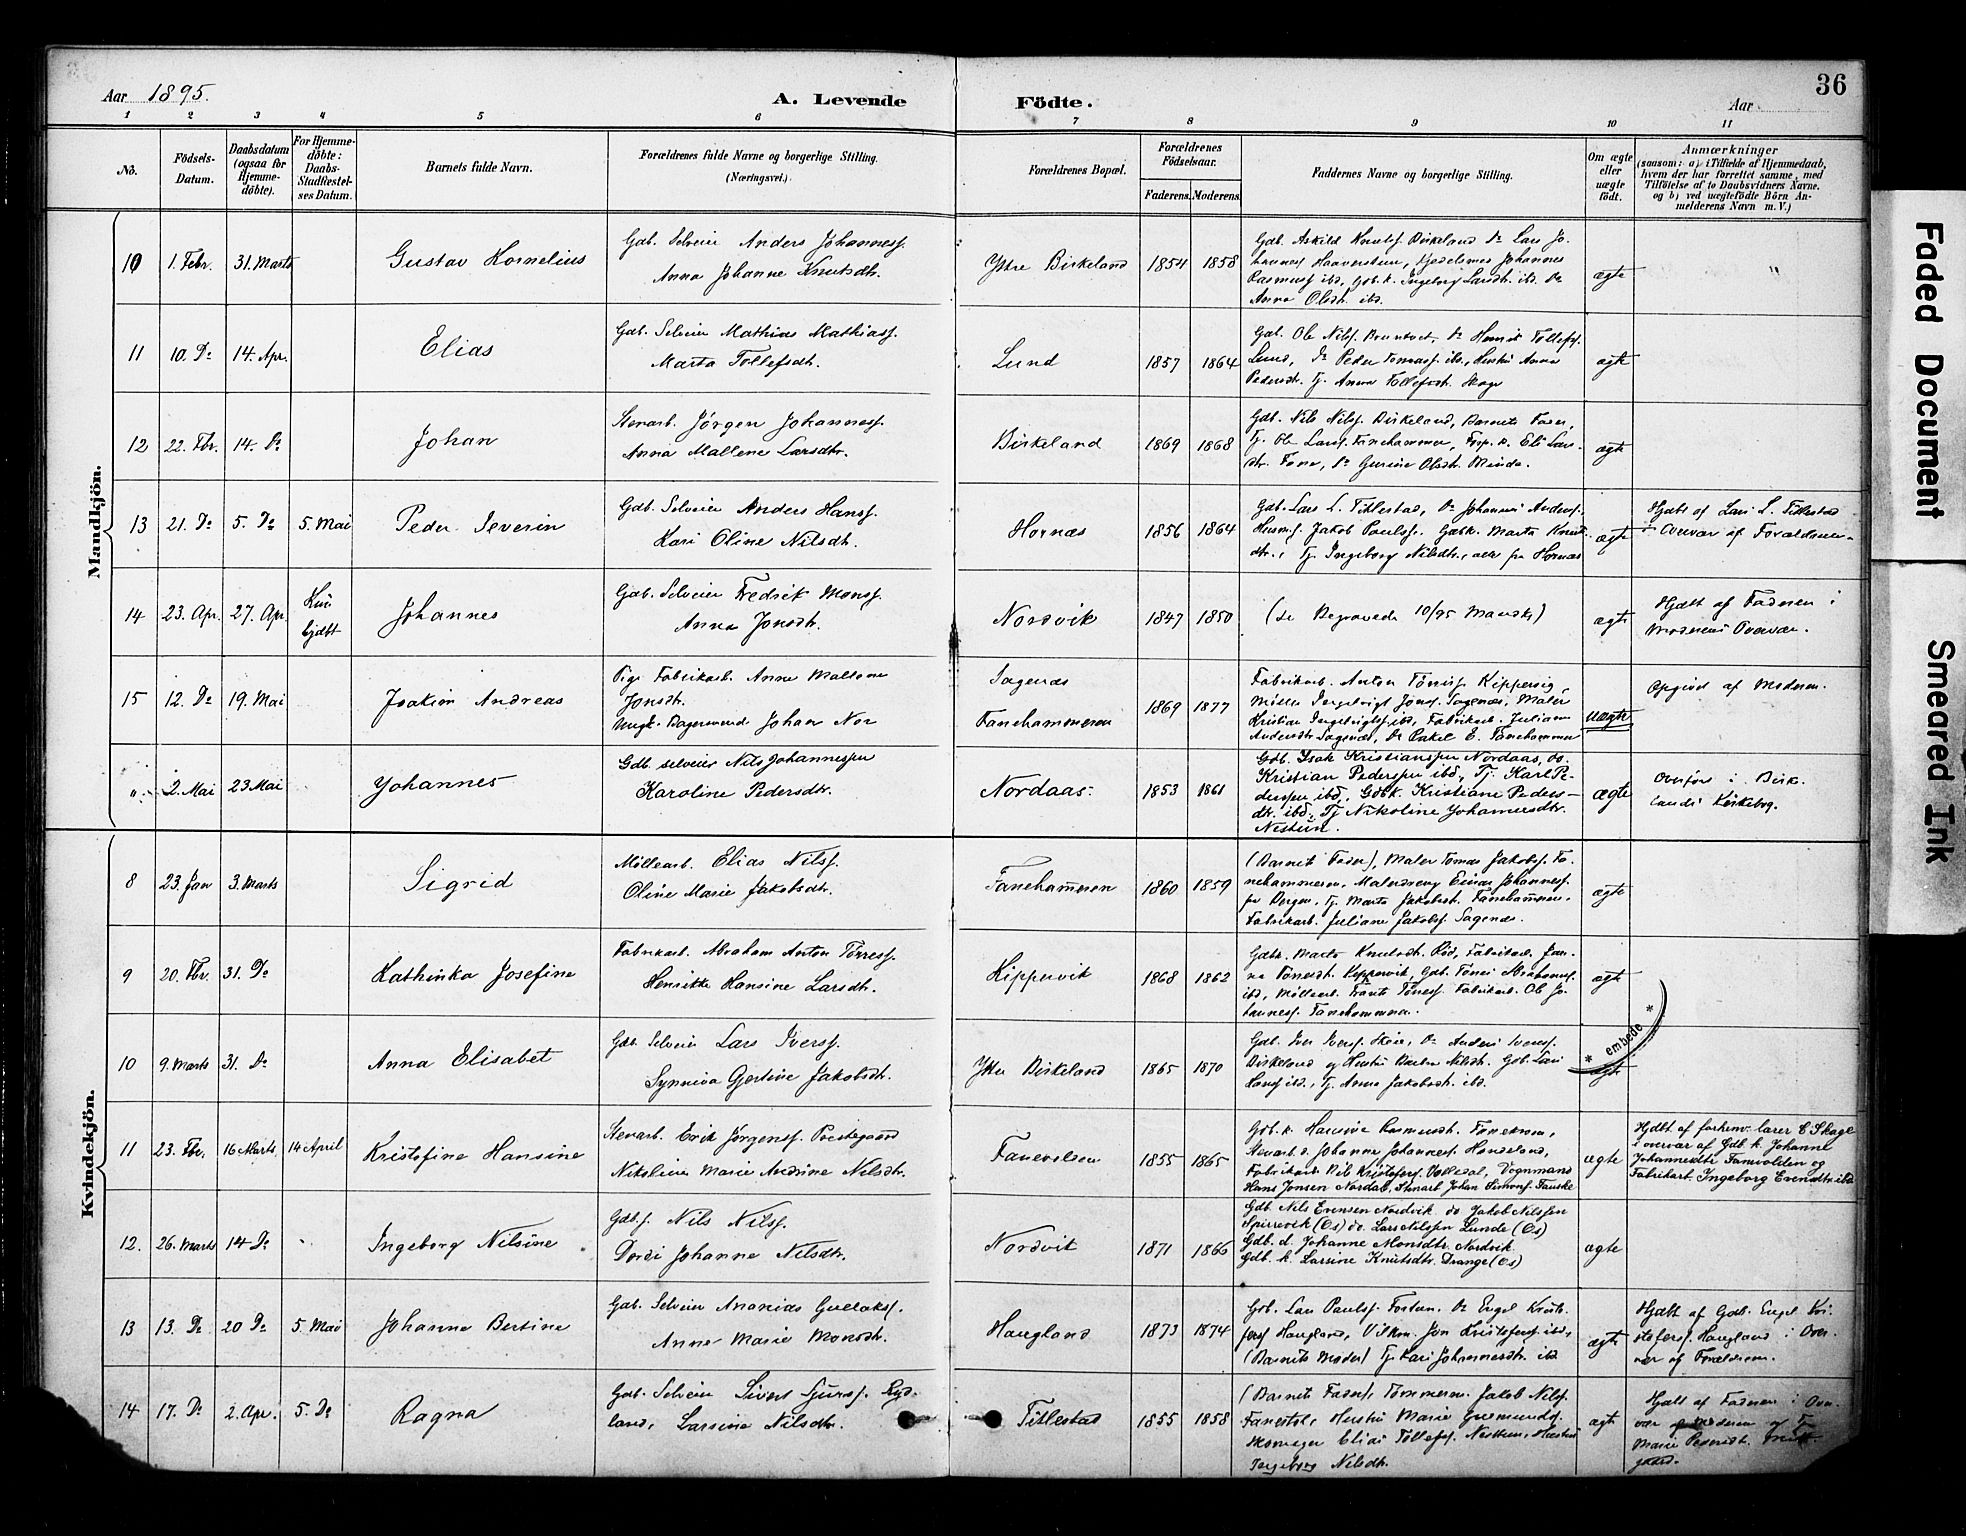 36
Aar 1895.
A. Levende
Födte.
Aar
1 2 3 4 5 6 7 8 9 10 11
No.
Födsels-
Datum.
Daabsdatum
(ogsaa for
Hjemme-
döbte).
For Hjemme-
döbte:
Daabs-
Stadfæstel-
ses Datum.
Barnets fulde Navn.
Forældrenes fulde Navne og borgerlige Stilling.
(Næringsvei.)
Forældrenes Bopæl.
Forældrenes
Födselsaar.
Faderens. Moderens.
Faddernes Navne og borgerlige Stilling.
Om ægte
eller
uægte
födt.
Anmærkninger
(saasom: a) i Tilfælde af Hjemmedaab,
hvem der har forrettet samme, med
Tilföielse af to Daabsvidners Navne.
og b) ved uægtefödte Börn An-
melderens Navn m. V.)
Mandkjön.
10 1. Febr. 31. Marts Gustav Kornelius
Gdb. Selveier Anders Johannesf.
Anna Johanne Knutsdtr.
Ytre Birkeland 1854 1858
Gdb. Askild Knutsf. Birkeland Do Lars Jo-
hannesf.
Rasmusf ibd, Gdb.k. Ingeborg Larsdtr. ibd. Do
Anna Olsdtr. ibd.
ægte "
11 10. Do 14. Apr. Elias
Gdb. Selveier Mathias Mathiasf.
Marta Tollefsdtr.
Lund 1857 1864
Gdb. Ole Nilsf. Do Tollefsf.
Lund, Do Peder Tomasf. ibd., Hustru Anna
Pedersdtr. Tj. Anna Tollefsdtr. Skage
ægte
12 22. Fbr. 14. Do Johan
Stenarb. Jörgen Johannesf.
Anna Mallene Larsdtr.
Birkeland 1869 1868
Gdb. Nils Nilsf. Birkeland, Barnets Fader,
Tj. Ole Larsf. Fanehammer, Eli Lars-
dtr. Fane, Do Gurine Olsdtr. Minde.
ægte
13 21. Do 5. Do 5. Mai Peder Severin
Gdb. Selveier Anders Hansf.
Kari Oline Nilsdtr.
Hornæs 1856 1864
Gdb. Lars L. Titlestad, Do Johannes Andersf.
Husm. Jakob Paulsf. Gdbk. Marta Knuts-
dtr., Tj. Ingeborg Nilsdtr., alle fra Hornæs
ægte
Hjdbt af Lars L. Titlestad
i Overvær af Forældrene.
14 23. Apr. 27. Apr. Kun
hjdbt Johannes
Gdb. Selveier Fredrik Monsf.
Anna Jonsdtr.
Nordvik 1847 1850
(se Begravede 10/95 Mandk)
ægte
Hjdbt af Faderen i
Moderens Overvær.
15 12. Do 19. Mai Joakim Andreas
Pige Fabrikarb. Anna Mallene
Jonsdtr.
Ungk. Bagersvend Johan Nor
Sagenæs
Fanehammeren
1869 1877
Fabrikarb. Anton Tönnesf. Kippersvig,
Möller Ingebrigt Jonsf. Sagenæs, Maler
Kristian Ingebrigtsf. ibd, Fabrikarb. Juliane
Andersdtr. Sagenæs, Do Rakel E. Fanehammer
uægte
Opgivet af Moderen.
". 2. Mai 23 Mai Johannes
Gdb. selveier Nils Johannessen
Karoline Pedersdtr.
Nordaas. 1853 1861
Gdb. Isak Kristianssen Nordaas, do.
Kristian Pederssen ibd, Tj. Karl Pe-
derssen ibd, Gdbk. Kristiane Peders-
dtr. ibd, Tj Nikoline Johannesdtr.
Nestun.
ægte
Overført i Birke-
lands Kirkebog.
Kvindekjön.
8 23. Jan 3. Marts Sigrid
Möllearb. Elias Nilsf.
Oline Marie Jakobsdtr.
Fanehammeren 1860 1859
(Barnets Fader), Maler Tomas Jakobsf. Fa-
nehammeren, Malerdreng Einar Johannesf.
fra Bergen, Tj. Marta Jakobsdtr. Fanehammeren,
Fabrikarb. Juliane Jakobsf. Sagenæs.
ægte
9 20. Fbr. 31. Do Kathinka Josefine
Fabrikarb. Abraham Anton Tönnesf.
Henrikke Hansine Larsdtr.
Kippervik 1868 1862
Gdbk. Marta Knutsdtr. Röd, Fabrikarb. Jan-
na Tönnesdtr. Kippervik, Gdb. Tönnes Abrahamsf.
ibd, Möllearb. Frants Tönnesf. Fabrikarb. Ole Jo-
hannesf. Fanehammeren.
ægte
10 9. Marts 31. Do Anna Elisabet
Gdb. Selveier Lars Iversf.
Synneva Gjertine Jakobsdtr.
Ytre Birkeland 1865 1870
Gdb. Iver Iversf. Skeie, Do Anders Iversf.
Birkeland og Hustru Nilsdtr. Gdb. Lars
Larsf ibd., Tj. Anna Jakobsdtr. ibd.
ægte
* embede *
11 23. Fbr. 16 Marts 14 April Kristofine Hansine
Stenarb. Erik Jörgensf. Prestegaard
Nikoline Marie Andrine Nilsdtr.
Fanevolden 1855 1865
Gdb.k. Hansine Rasmusdtr.
Stenarb. Johanne Johannesf.
Fabrikarb. Nils Kristofersf. Vognmand
Hans Jonsen Nordaas, Stenarb Johan Simonsf. Fauske
ægte
Hjdbt af forhenv. lærer E Skage
i overvær af Gdb. k. Johanne
Johannesdtr Fanevolden og
Fabrikarb. Ingeborg Evensdtr ibd
12. 26. Marts 14 Do Ingeborg Nilsine
Gdb.s. Nils Nilsf.
Dordi Johanne Nilsdtr.
Nordvik 1871 1866
Gdb. Nils Evensen Nordvik do Jakob Nilssen
Spirrevik (Os) do. Lars Nilssen Lunde (Os)
Gdb. d. Johanne Monsdtr. Nordvik
Gdb. k. Larsine Knutsdtr. Drange (Os)
ægte
13 13. Do 20 Do 5. Mai Johanne Bertine
Gdb. Selveier Ananias Gullaksf.
Anne Marie Monsdtr.
Haugland 1873 1874
Gdb. Lars Paulsf. Fortun, Do Engel Kristo-
fersf Haugland, Jon Kristofersf. ibd,
(Barnets Moder) Tj. Kari Johannesdtr. ibd
ægte
Hjdbt af Gdb. Engel Kri-
stofersf. Haugland i Over-
vær af Forældrene.
14 17. Do 2. Apr. 5. Do Ragna
Gdb. Selveier Sivert Sjursf. Ryd-
land, Larsine Nilsdtr.
Titlestad 1855 1858
(Barnets Fader), Tømmerm. Jakob Nilsf.
Hustru Marie
Skomager Elias Tollefsf. Nesttun, Hustru
Ingeborg Nilsdtr.
ægte
Hjdbt af Faderen i Over-
vær af Moderen og Tj.
Marie Pedersdtr.
Faded Document
Smeared Ink